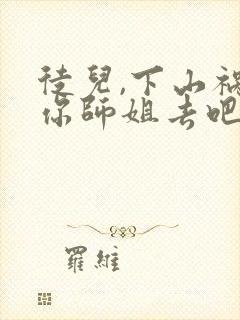 徒兒,下山禍
你師姐去吧
羅維